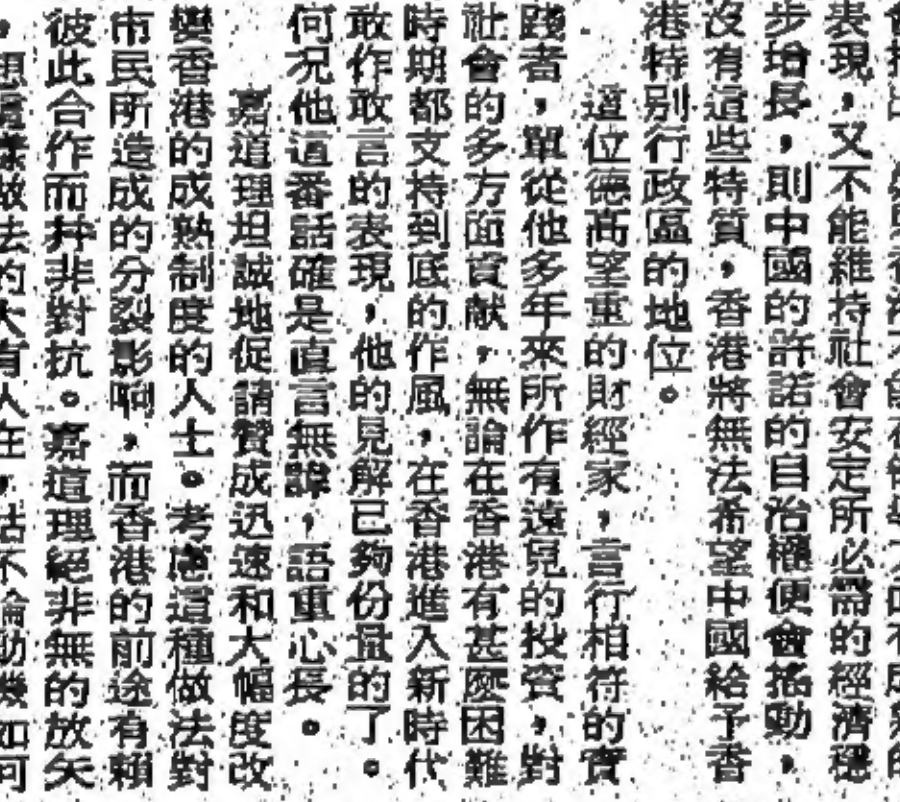 表現，又不能維持社會安定所必需的經濟穩
步增長，則中國的許諾的自治權便會搖動。
沒有這些特質，香港將無法希望中國給予香
港特別行政區的地位。
這位德高望重的財經家，言行相符的實
踐者，單從他多年來所作有遠見的投資，對
社會的多方面貢献，無論在香港有甚麼困難
時期都支持到底的作風，在香港進入新時代
敢作敢言的表現，他的見解已夠份量的了。
何況他這番話確是直言無諱，語重心長。
嘉道理坦誠地促請贊成迅速和大幅度改
變香港的成熟制度的人士。考慮這種做法對
市民所造成的分裂影响，而香港的前途有賴
彼此合作而并非對抗。嘉道理絕非無的放矢